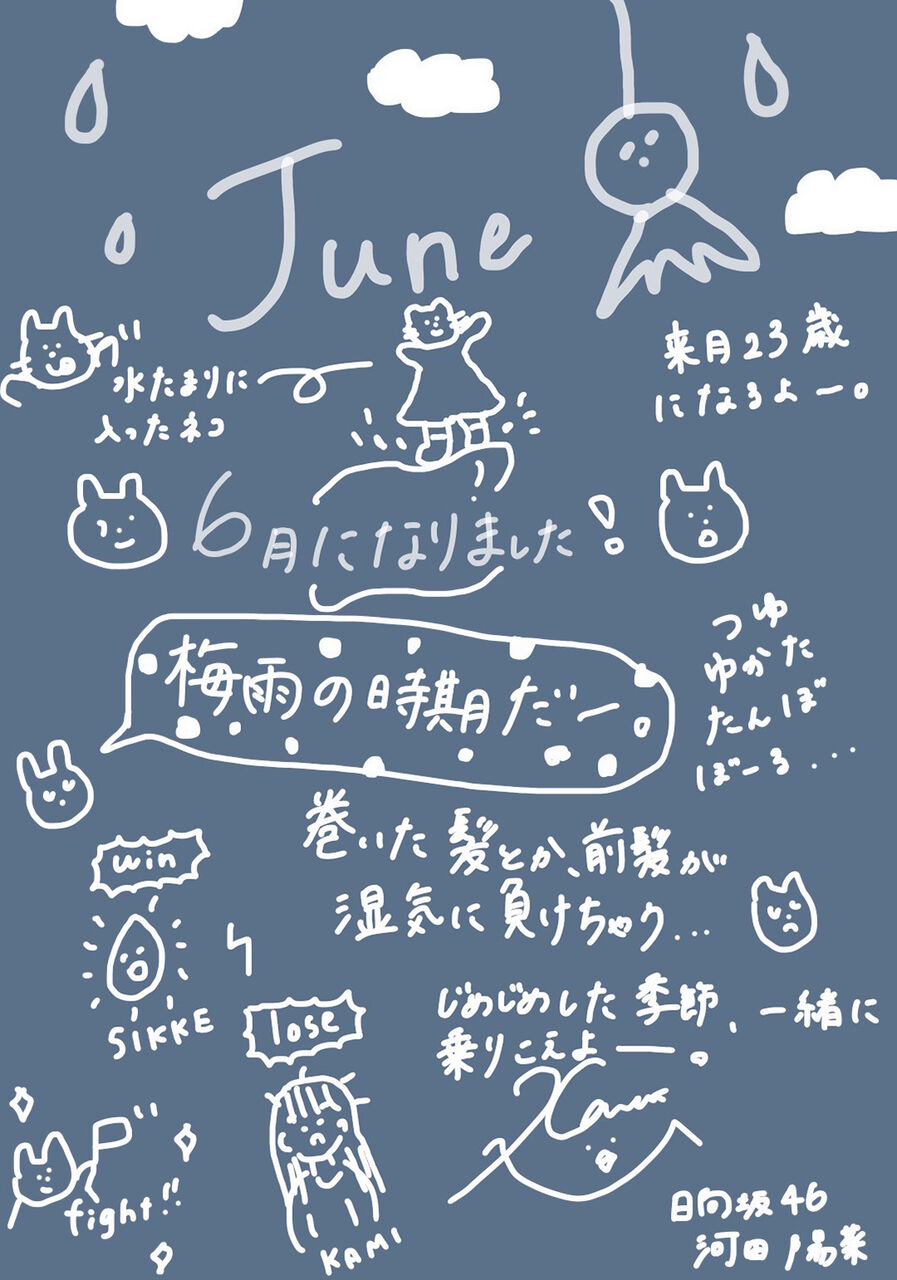 June
水たまりに
入ったネコ
来月23歳
になるよー。
6月になりました!
梅雨の時期だー。
つゆ
ゆかた
たんぼ
ぼーる...
巻いた髪とか、前髪が
湿気に負けちゃう...
win
SIKKE
lose
KAMI
じめじめした季節、一緒に
乗りこえよー。
fight!!
日向坂46
河田陽菜